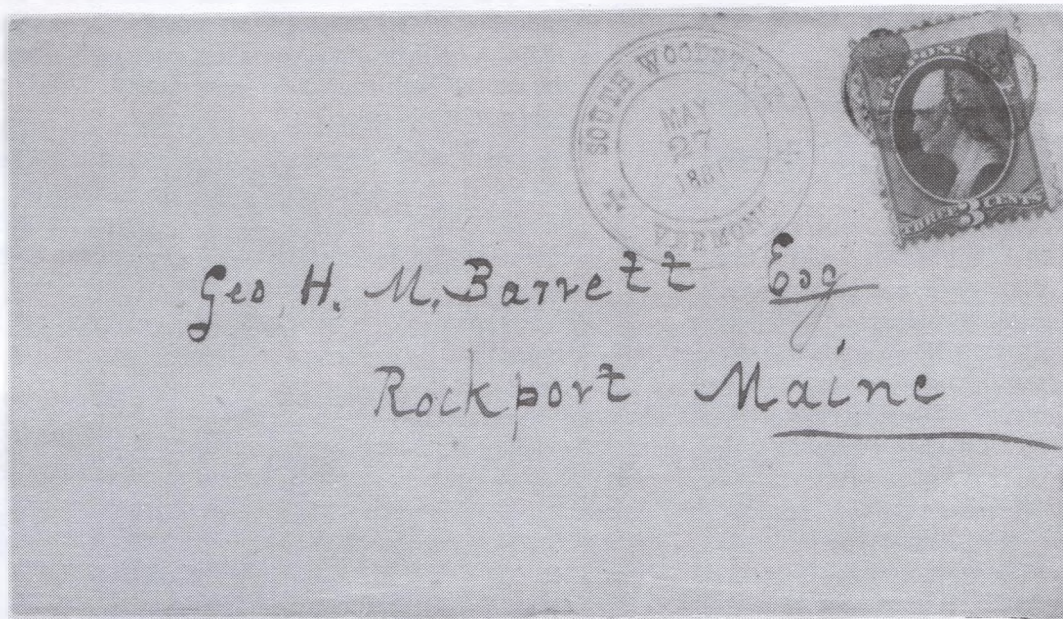 SOUTH WOODSTOCK
MAY
27
VERMONT
U.S. POSTAGE
THREE 3 CENTS
Geo. H. M. Barrett Esq
Rockport Maine